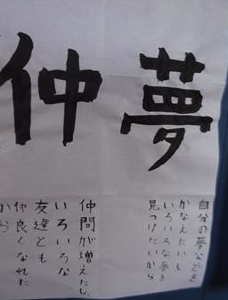 夢
自分の夢などを
かなえたいし
いろいろな夢を
見つけたいから
仲
仲間が増えたし、
いろいろな
友達とも
仲良くなれた
から